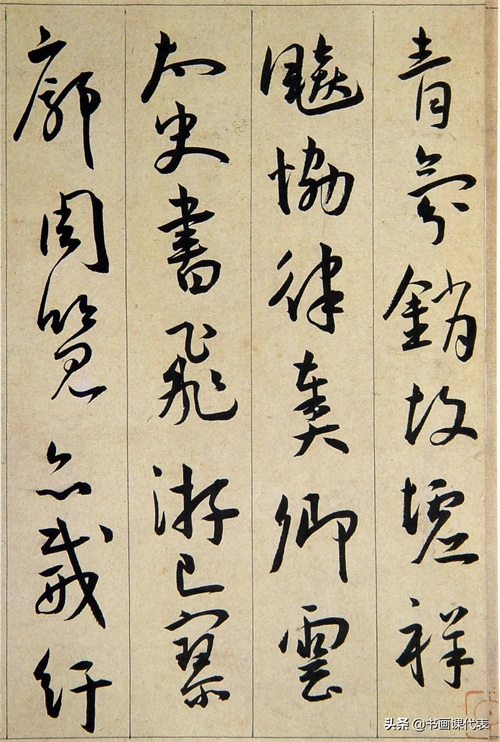 青氛銷故墟祥
飈協律奏卿雲
太史書飛游已寥
廓周覽亦威紆
头条 @书画课代表